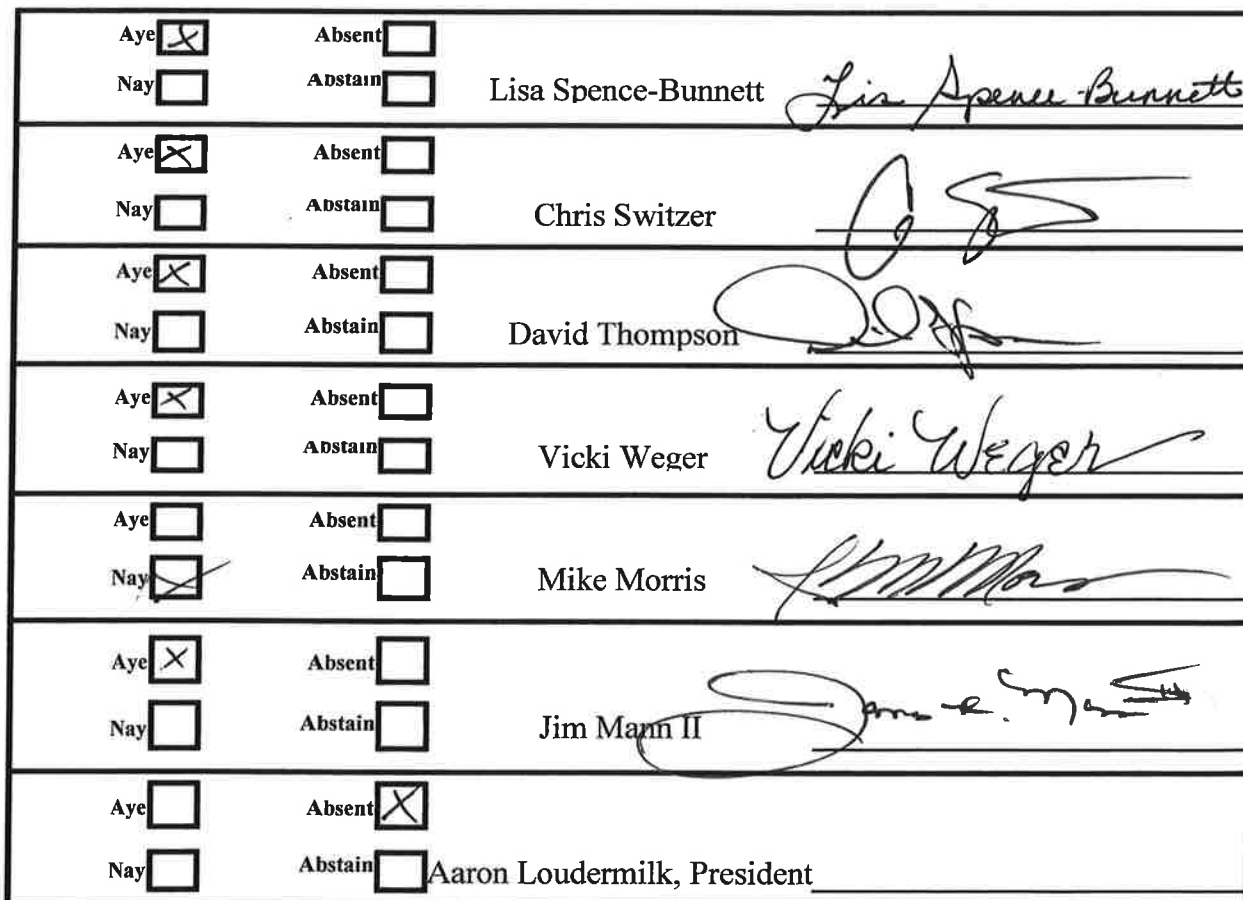 Aye X Absent
Nay Abstain Lisa Spence-Bunnett Lisa Spence-Bunnett
Aye X Absent
Nay Abstain Chris Switzer
Aye X Absent
Nay Abstain David Thompson
Aye X Absent
Nay Abstain Vicki Weger Vicki Weger
Aye Absent
Nay X Abstain Mike Morris
Aye X Absent
Nay Abstain Jim Mann II
Aye Absent X
Nay Abstain Aaron Loudermilk, President